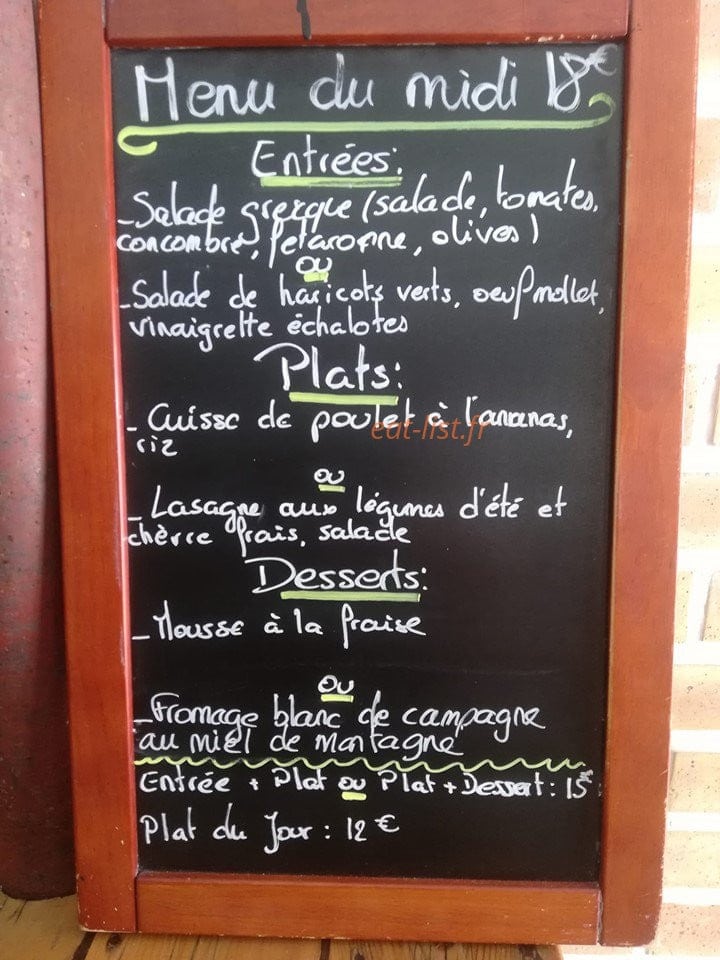 Menu du midi 18€
Entrées:
- Salade grecque (salade, tomates,
concombre, fetaromne, olives)
ou
- Salade de haricots verts, oeuf mollet,
vinaigrette échalotes
Plats:
- Cuisse de poulet à l'ananas,
riz
eat-list.fr
ou
- Lasagne aux légumes d'été et
chèvre frais, salade
Desserts:
- Mousse à la fraise
ou
- Fromage blanc de campagne
au miel de montagne
Entrée + Plat ou Plat + Dessert: 15€
Plat du Jour: 12€